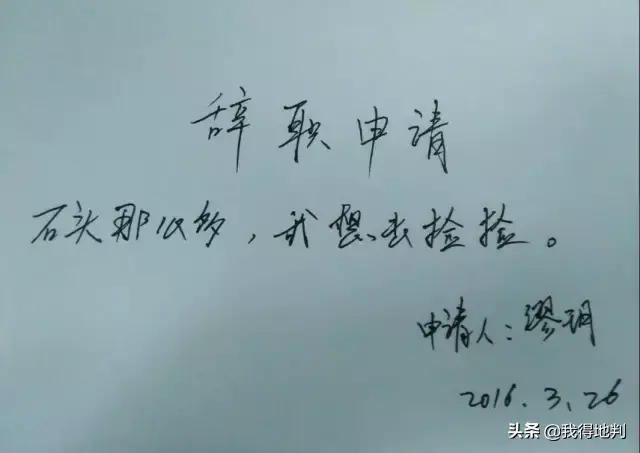 辞职申请
石头那么多，我想去捡捡。
申请人：缪玥
2016.3.26
头条 @我得地判